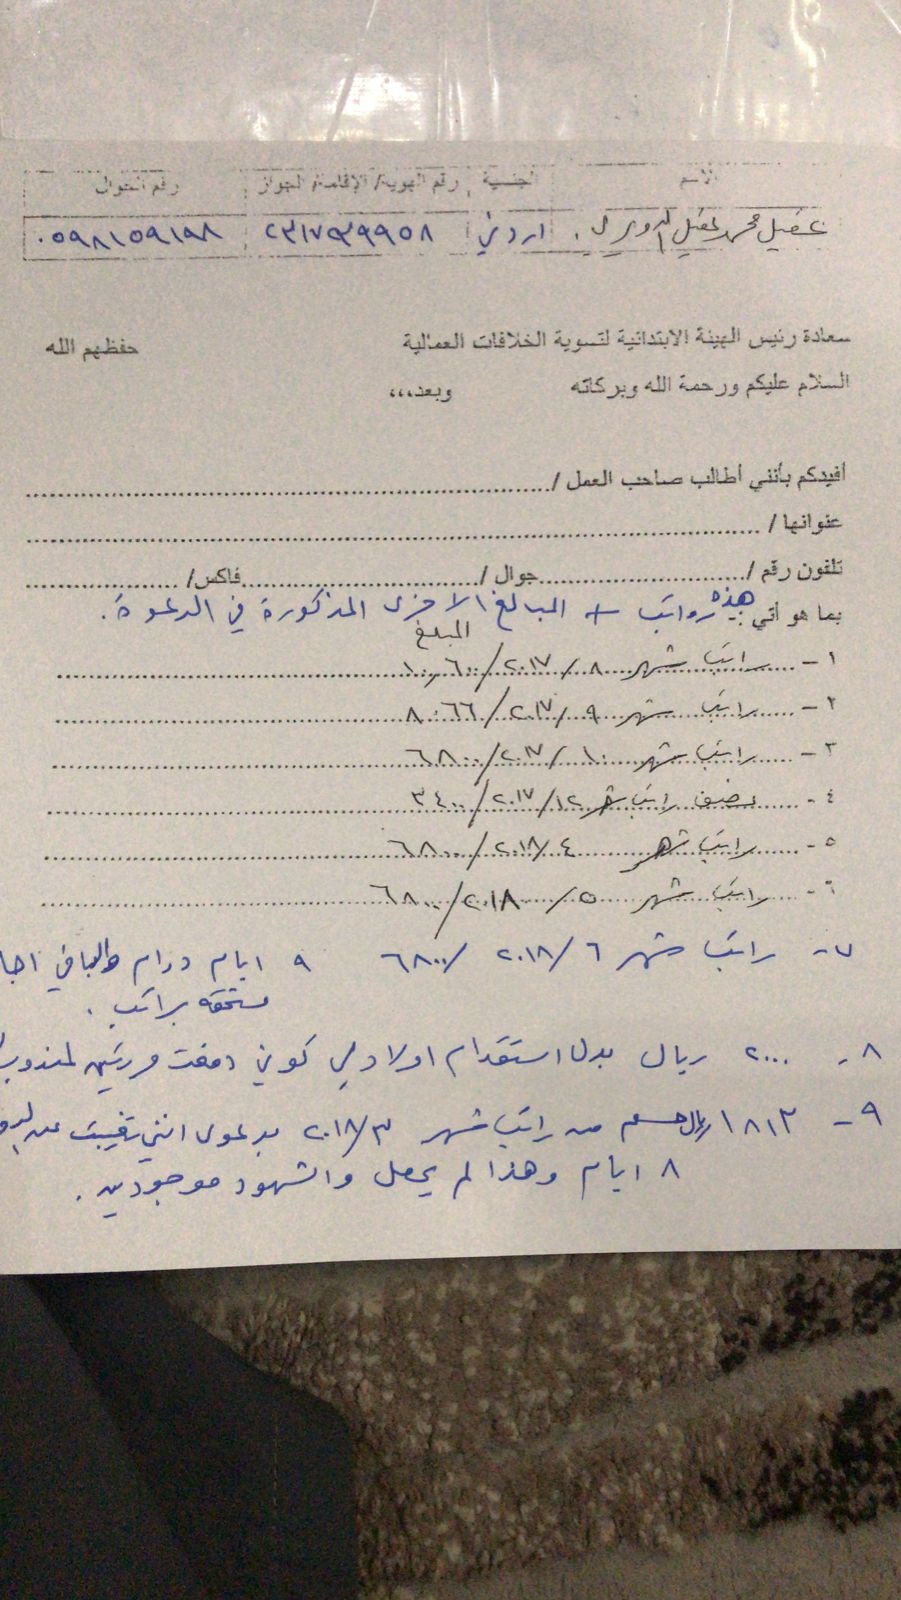 الاسم الجنسية رقم الهوية/ الإقامة/ الجواز رقم الجوال
عقيل محمد عقيل اردني ٢٣١٧٣٩٩٥٨ ٠٥٩٨١٥٩١٩٨
سعادة رئيس الهيئة الابتدائية لتسوية الخلافات العمالية حفظهم الله
السلام عليكم ورحمة الله وبركاته وبعد،،،
أفيدكم بأنني أطالب صاحب العمل /
عنوانها /
تلفون رقم / جوال / فاكس/
بما هو آتي :- هذه رواتب + المبالغ الاخرى المذكورة في الدعوة.
المبلغ
١- راتب شهر ٨ /٢٠١٧/ ١٠,٦٠٠
٢- راتب شهر ٩ /٢٠١٧/ ٨٠٦٦
٣- راتب شهر ١٠ /٢٠١٧/ ٦٨٠٠
٤- نصف راتب شهر ١٢ /٢٠١٧/ ٣٤٠٠
٥- راتب شهر ٤ /٢٠١٨/ ٦٨٠٠
٦- راتب شهر ٥ /٢٠١٨/ ٦٨٠٠
٧- راتب شهر ٦ /٢٠١٨/ ٦٨٠٠ ٩ ايام دوام والباقي اجا
مستحقه براتب .
٨- ٢٠٠٠ ريال بدل استقدام اولادي كوني دفعت لمندوب
٩- ١٨١٣ ريال حسم من راتب شهر ٣/٢٠١٨ بدعوى انني تغيبت عن
٨ ايام وهذا لم يحصل والشهود موجودين .